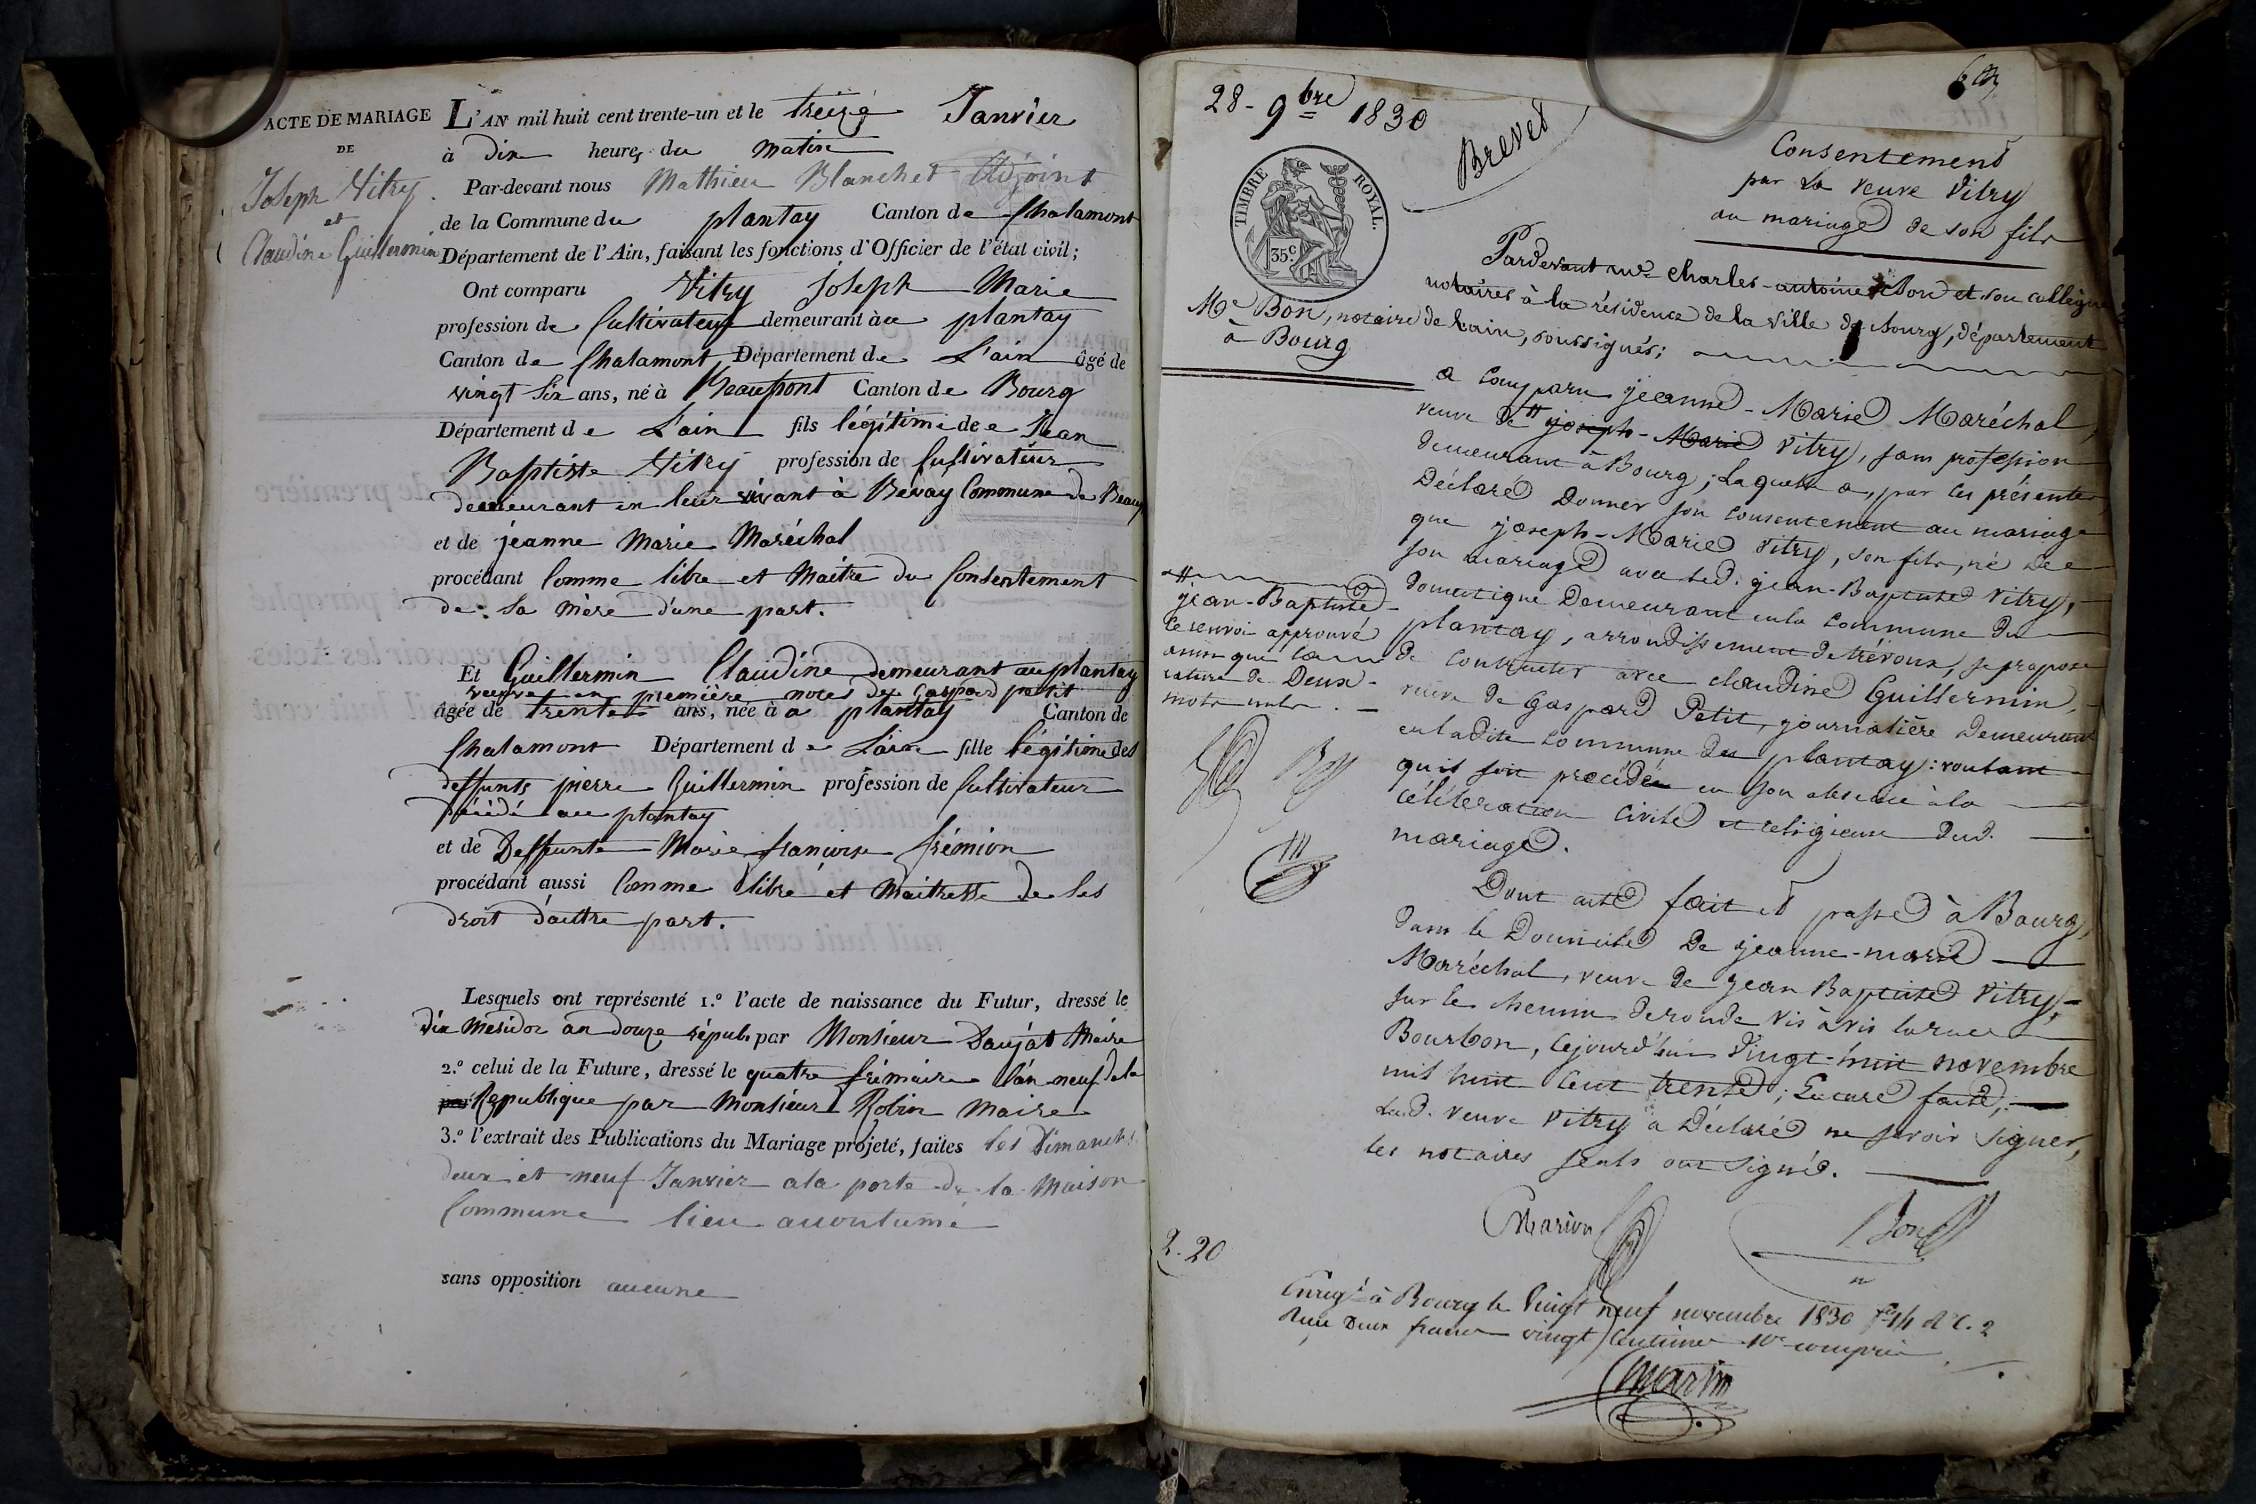 ACTE DE MARIAGE
DE
Joseph Vitry
et
Claudine Guillermin
L'AN mil huit cent trente-un et le treize Janvier
à dix heures du matin
Par-devant nous Mathieu Blanchet Adjoint
de la Commune du plantay Canton de Chalamont
Département de l'Ain, faisant les fonctions d'Officier de l'état civil;
Ont comparu Vitry Joseph Marie
profession de Cultivateur demeurant au plantay
Canton de Chalamont Département de L'ain âgé de
vingt six ans, né à Beaupont Canton de Bourg
Département de L'ain fils légitime de Jean
Baptiste Vitry profession de Cultivateur
demeurant en leur vivant à Bevay Commune de Beaup
et de jeanne Marie Maréchal
procédant Comme libre et Maitre du Consentement
de Sa Mère d'une part.
Et Guillermin Claudine demeurant au plantay
veuve en première noces de Gaspard petit
âgée de trente ans, née à a plantay Canton de
Chalamont Département de L'ain fille légitime des
deffunts pierre Guillermin profession de Cultivateur
décédé au plantay
et de Deffunte Marie françoise frémion
procédant aussi Comme libre et Maitresse de Ses
droit d'autre part.
Lesquels ont représenté 1.º l'acte de naissance du Futur, dressé le
dix Mesidor an douze répub. par Monsieur Daujat Maire
2.º celui de la Future, dressé le quatre frimaire l'an neuf de la
par République par Monsieur Robin Maire
3.º l'extrait des Publications du Mariage projeté, faites les Dimanches
deux et neuf Janvier a la porte de la Maison
Commune lieu accoutumé
sans opposition aucune
28 - 9bre 1830
Brevet
Consentement
par La veuve Vitry
au mariage de son fils
TIMBRE ROYAL.
35c
Me Bon, notaire
à Bourg
Pardevant me charles-antoine Bon et son collègue
notaires à la résidence de la ville de Bourg, département
de l'ain, soussignés;
a comparu jeanne-Marie Maréchal,
veuve de # joseph-Marie Vitry, sans profession
demeurant à Bourg; Laquelle a, par ces présentes
Déclaré Donner son consentement au mariage
que joseph-Marie Vitry, son fils, né de
son mariage avec led. jean-Baptiste Vitry,
domestique Demeurant en la commune du
plantay, arrondissement de trévoux, se propose
de contracter avec claudine Guillermin,
veuve de Gaspard Petit, journalière Demeurant
en ladite commune du plantay: voulant
qu'il soit procédé en son absence à la
célébration civile et religieuse dud.
mariage.
#
jean-Baptiste
ce renvoi approuvé
ainsi que la
rature de Deux
mots nuls.
Dont acte fait et passé à Bourg,
dans le Domicile de jeanne-marie
Maréchal, veuve de jean Baptiste Vitry,
sur le chemin de ronde vis à vis la rue
Bourbon, cejourd'hui vingt-huit novembre
mil huit cent trente; Lecture faite,
Lad. veuve Vitry a Déclaré ne savoir signer,
les notaires seuls ont signé.
Marion Bon
2.20
Enregé à Bourg le vingt neuf novembre 1830 fo 14 Ro C. 2
Reçu Deux francs vingt Centimes 10e compris
Martin